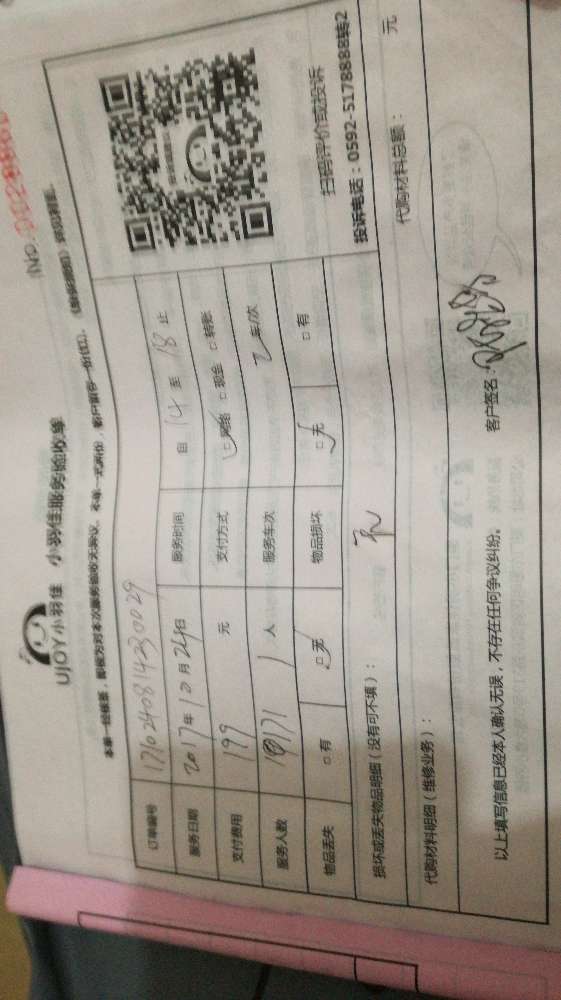 UJOY小羽佳 小羽佳服务验收单
No.
本单一经签署，即视为对本次服务验收无异议。本单一式两份，客户留存一份(红)，
订单编号 1710240814230029
服务日期 2017年10月24日 服务时间 自 14 至 18 止
支付费用 199 元 支付方式 ☑网络 □现金 □转账
服务人数 1 人 服务车次 车/次
物品丢失 □有 ☑无 物品损坏 ☑无 □有
扫码评价或投诉
投诉电话：0592-5178888转2
损坏或丢失物品明细（没有可不填）： 无
代购材料明细（维修业务）： 代购材料总额： 元
以上填写信息已经本人确认无误，不存在任何争议纠纷。 客户签名：